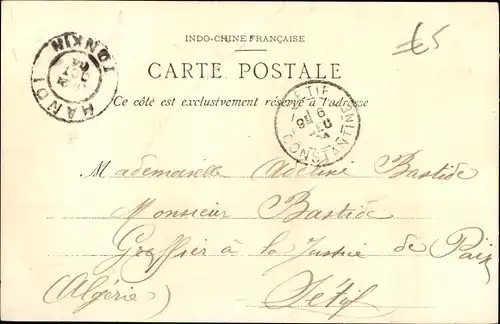 INDO-CHINE FRANÇAISE
£5
HANOI
TONKIN
CARTE POSTALE
Ce côté est exclusivement réservé à l'adresse
SETIF
CONSTANTINE
Mademoiselle Adeline Bastide
Monsieur Bastide
Greffier à la Justice de Paix
(Algérie) Sétif